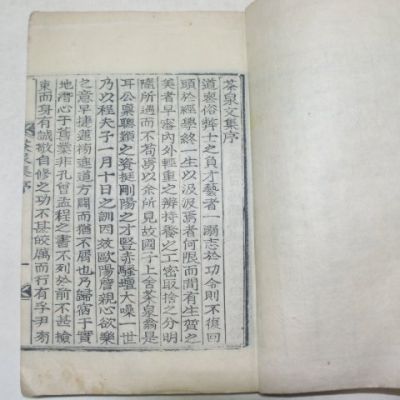 茶泉文集序
道喪俗弊士之負才藝者一溺志於功令則不復回
頭於經學終一生以汲汲焉者何限而間有生質之
美者早審內外輕重之辨持養之工密取捨之分明
隨所遇而不苟焉以余所見故國子上舍茶泉翁是
耳公稟聰穎之資挺剛陽之才豎赤騷壇大噪一世
乃以程夫子一月十日之訓因效歐陽詹親心欲樂
之意早捷蓮榜進道方闢而猶不屑也乃歸宿于實
地潛心于舊業非孔曾孟程之書不列於前不甚撿
東而身有誠敬自修之功不甚皎厲而行有孚尹旁
茶泉集序
一